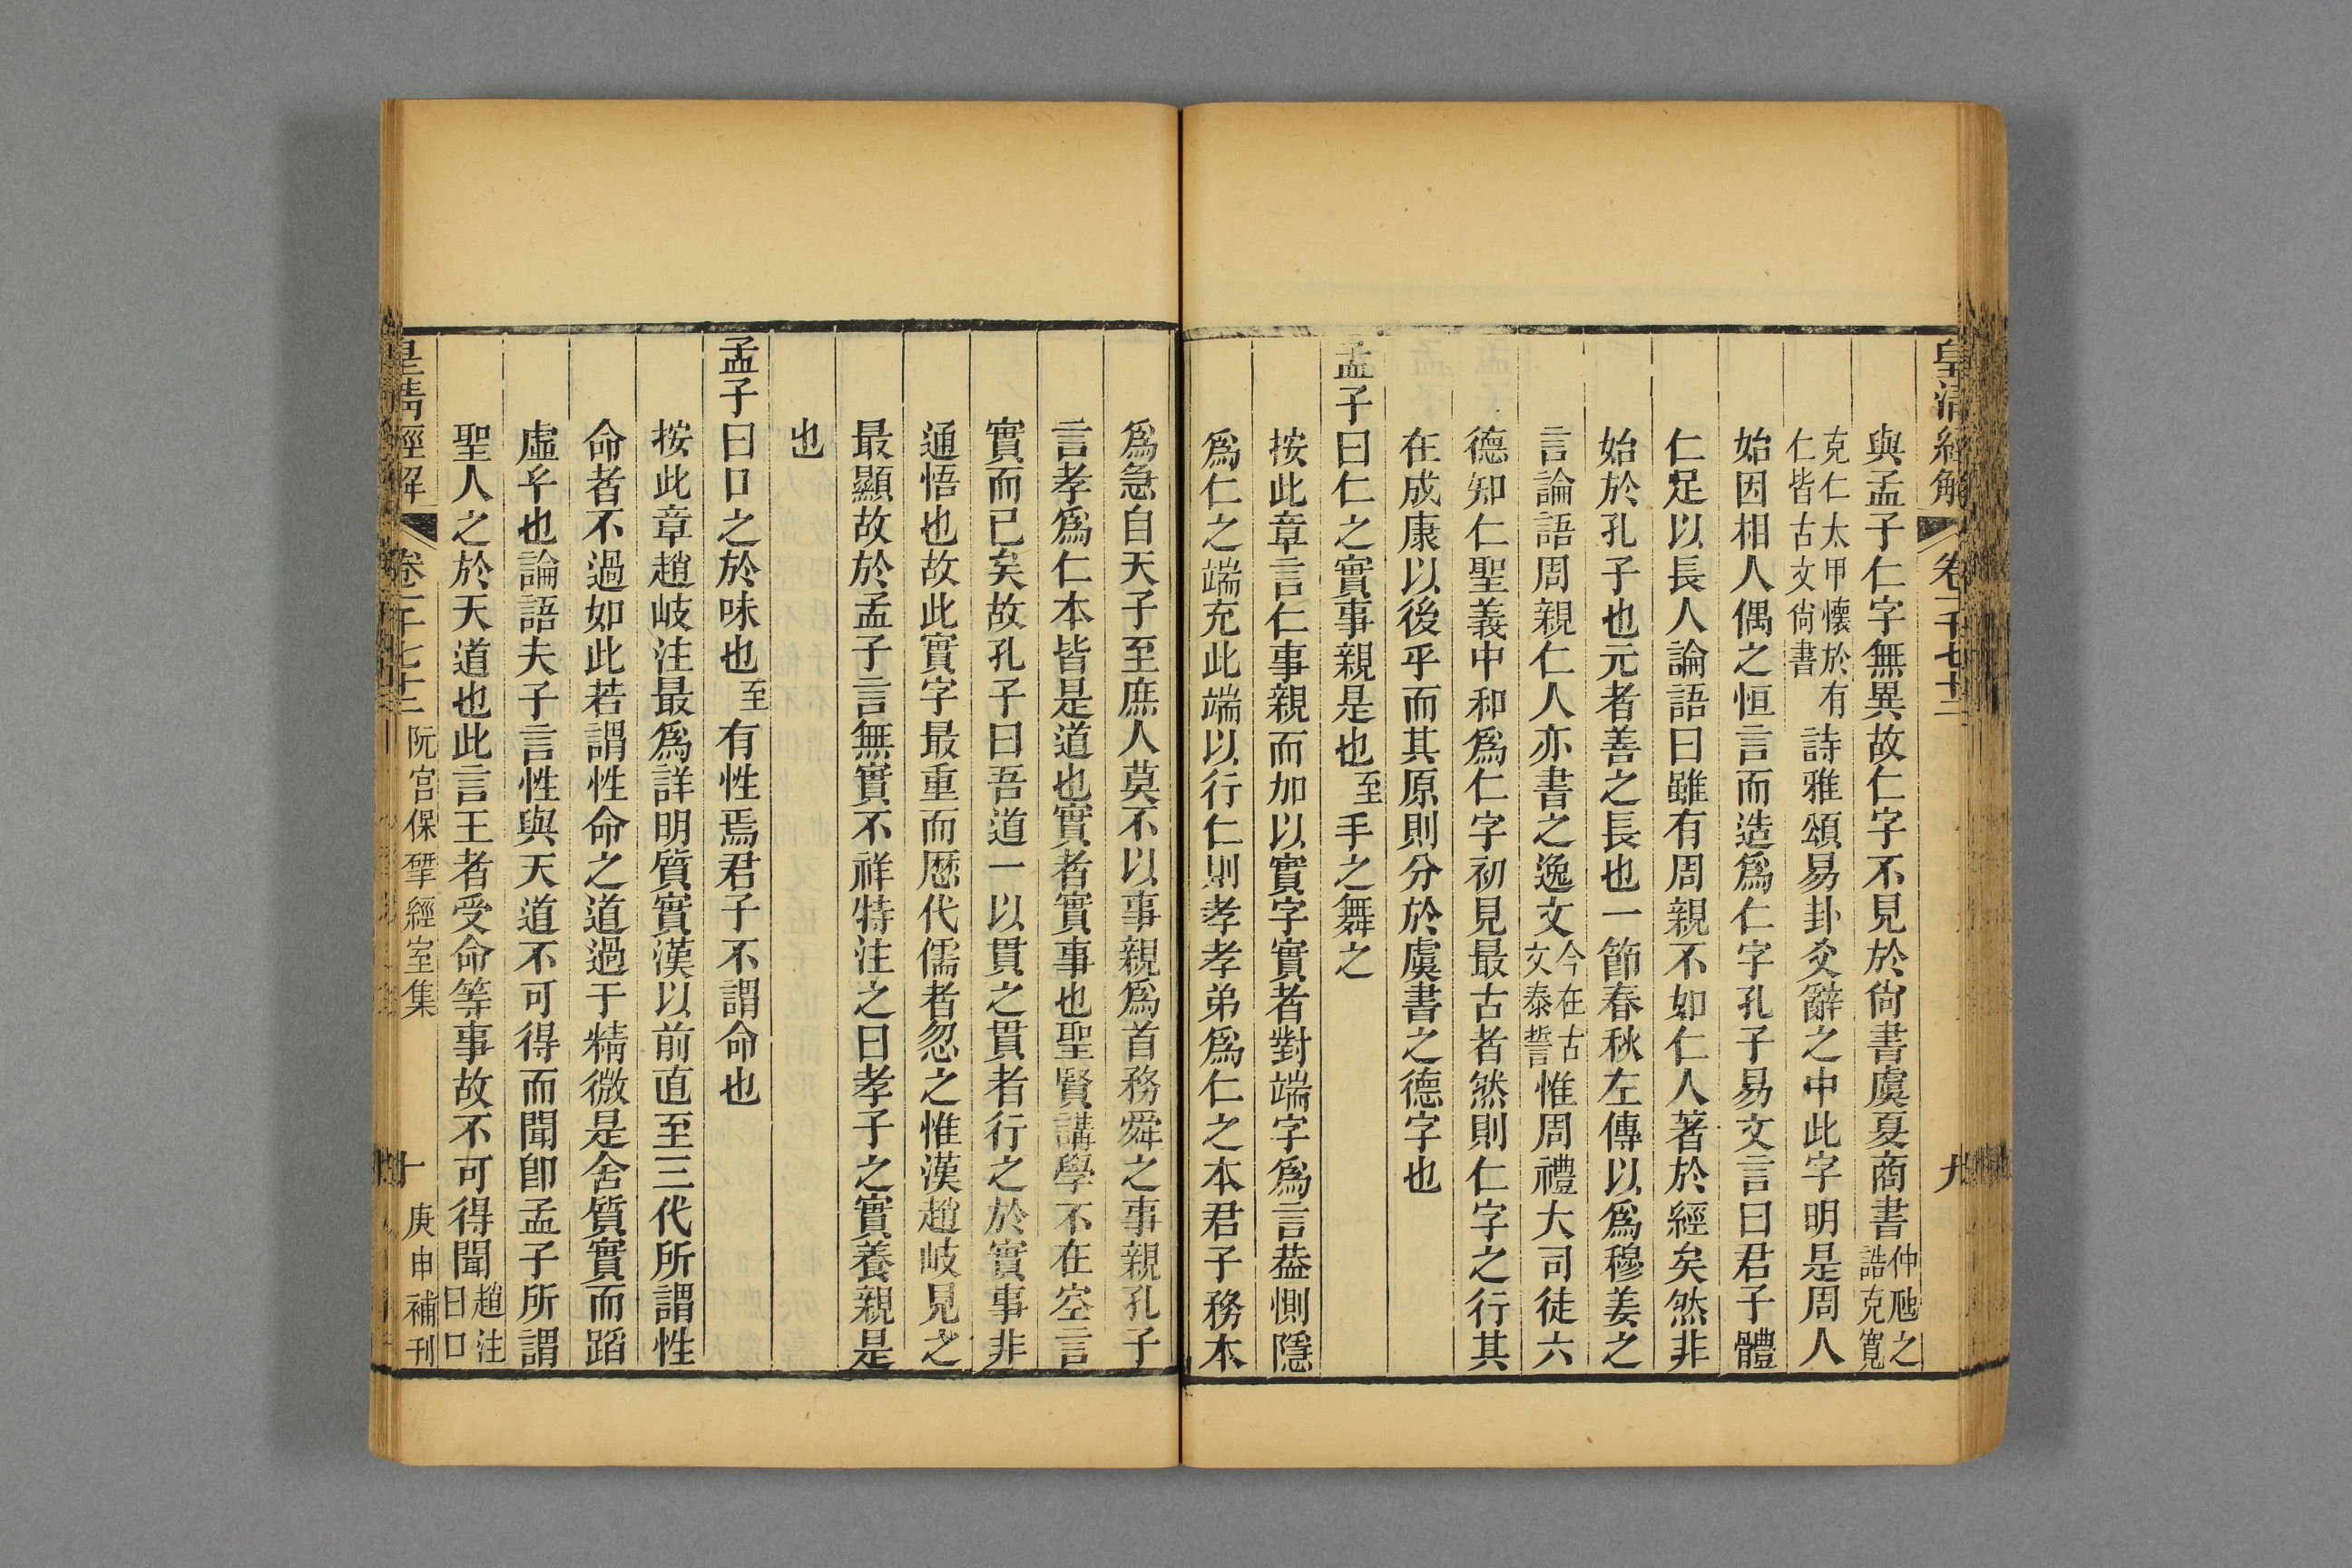 皇清經解 卷一千七十二 九
與孟子仁字無異故仁字不見於尙書虞夏商書仲虺之誥克寬
克仁太甲懷於有仁皆古文尙書詩雅頌易卦爻辭之中此字明是周人
始因相人偶之恒言而造爲仁字孔子易文言曰君子體
仁足以長人論語曰雖有周親不如仁人著於經矣然非
始於孔子也元者善之長也一節春秋左傳以爲穆姜之
言論語周親仁人亦書之逸文今在古文泰誓惟周禮大司徒六
德知仁聖義中和爲仁字初見最古者然則仁字之行其
在成康以後乎而其原則分於虞書之德字也
孟子曰仁之實事親是也至手之舞之
按此章言仁事親而加以實字實者對端字爲言葢惻隱
爲仁之端充此端以行仁則孝孝弟爲仁之本君子務本
爲急自天子至庶人莫不以事親爲首務舜之事親孔子
言孝爲仁本皆是道也實者實事也聖賢講學不在空言
實而已矣故孔子曰吾道一以貫之貫者行之於實事非
通悟也故此實字最重而歷代儒者忽之惟漢趙岐見之
最顯故於孟子言無實不祥特注之曰孝子之實養親是
也
孟子曰口之於味也至有性焉君子不謂命也
按此章趙岐注最爲詳明質實漢以前直至三代所謂性
命者不過如此若謂性命之道過于精微是舍質實而蹈
虛乎也論語夫子言性與天道不可得而聞卽孟子所謂
聖人之於天道也此言王者受命等事故不可得聞趙注曰口
皇清經解 卷一千七十二 阮宮保揅經室集 十 庚申補刊